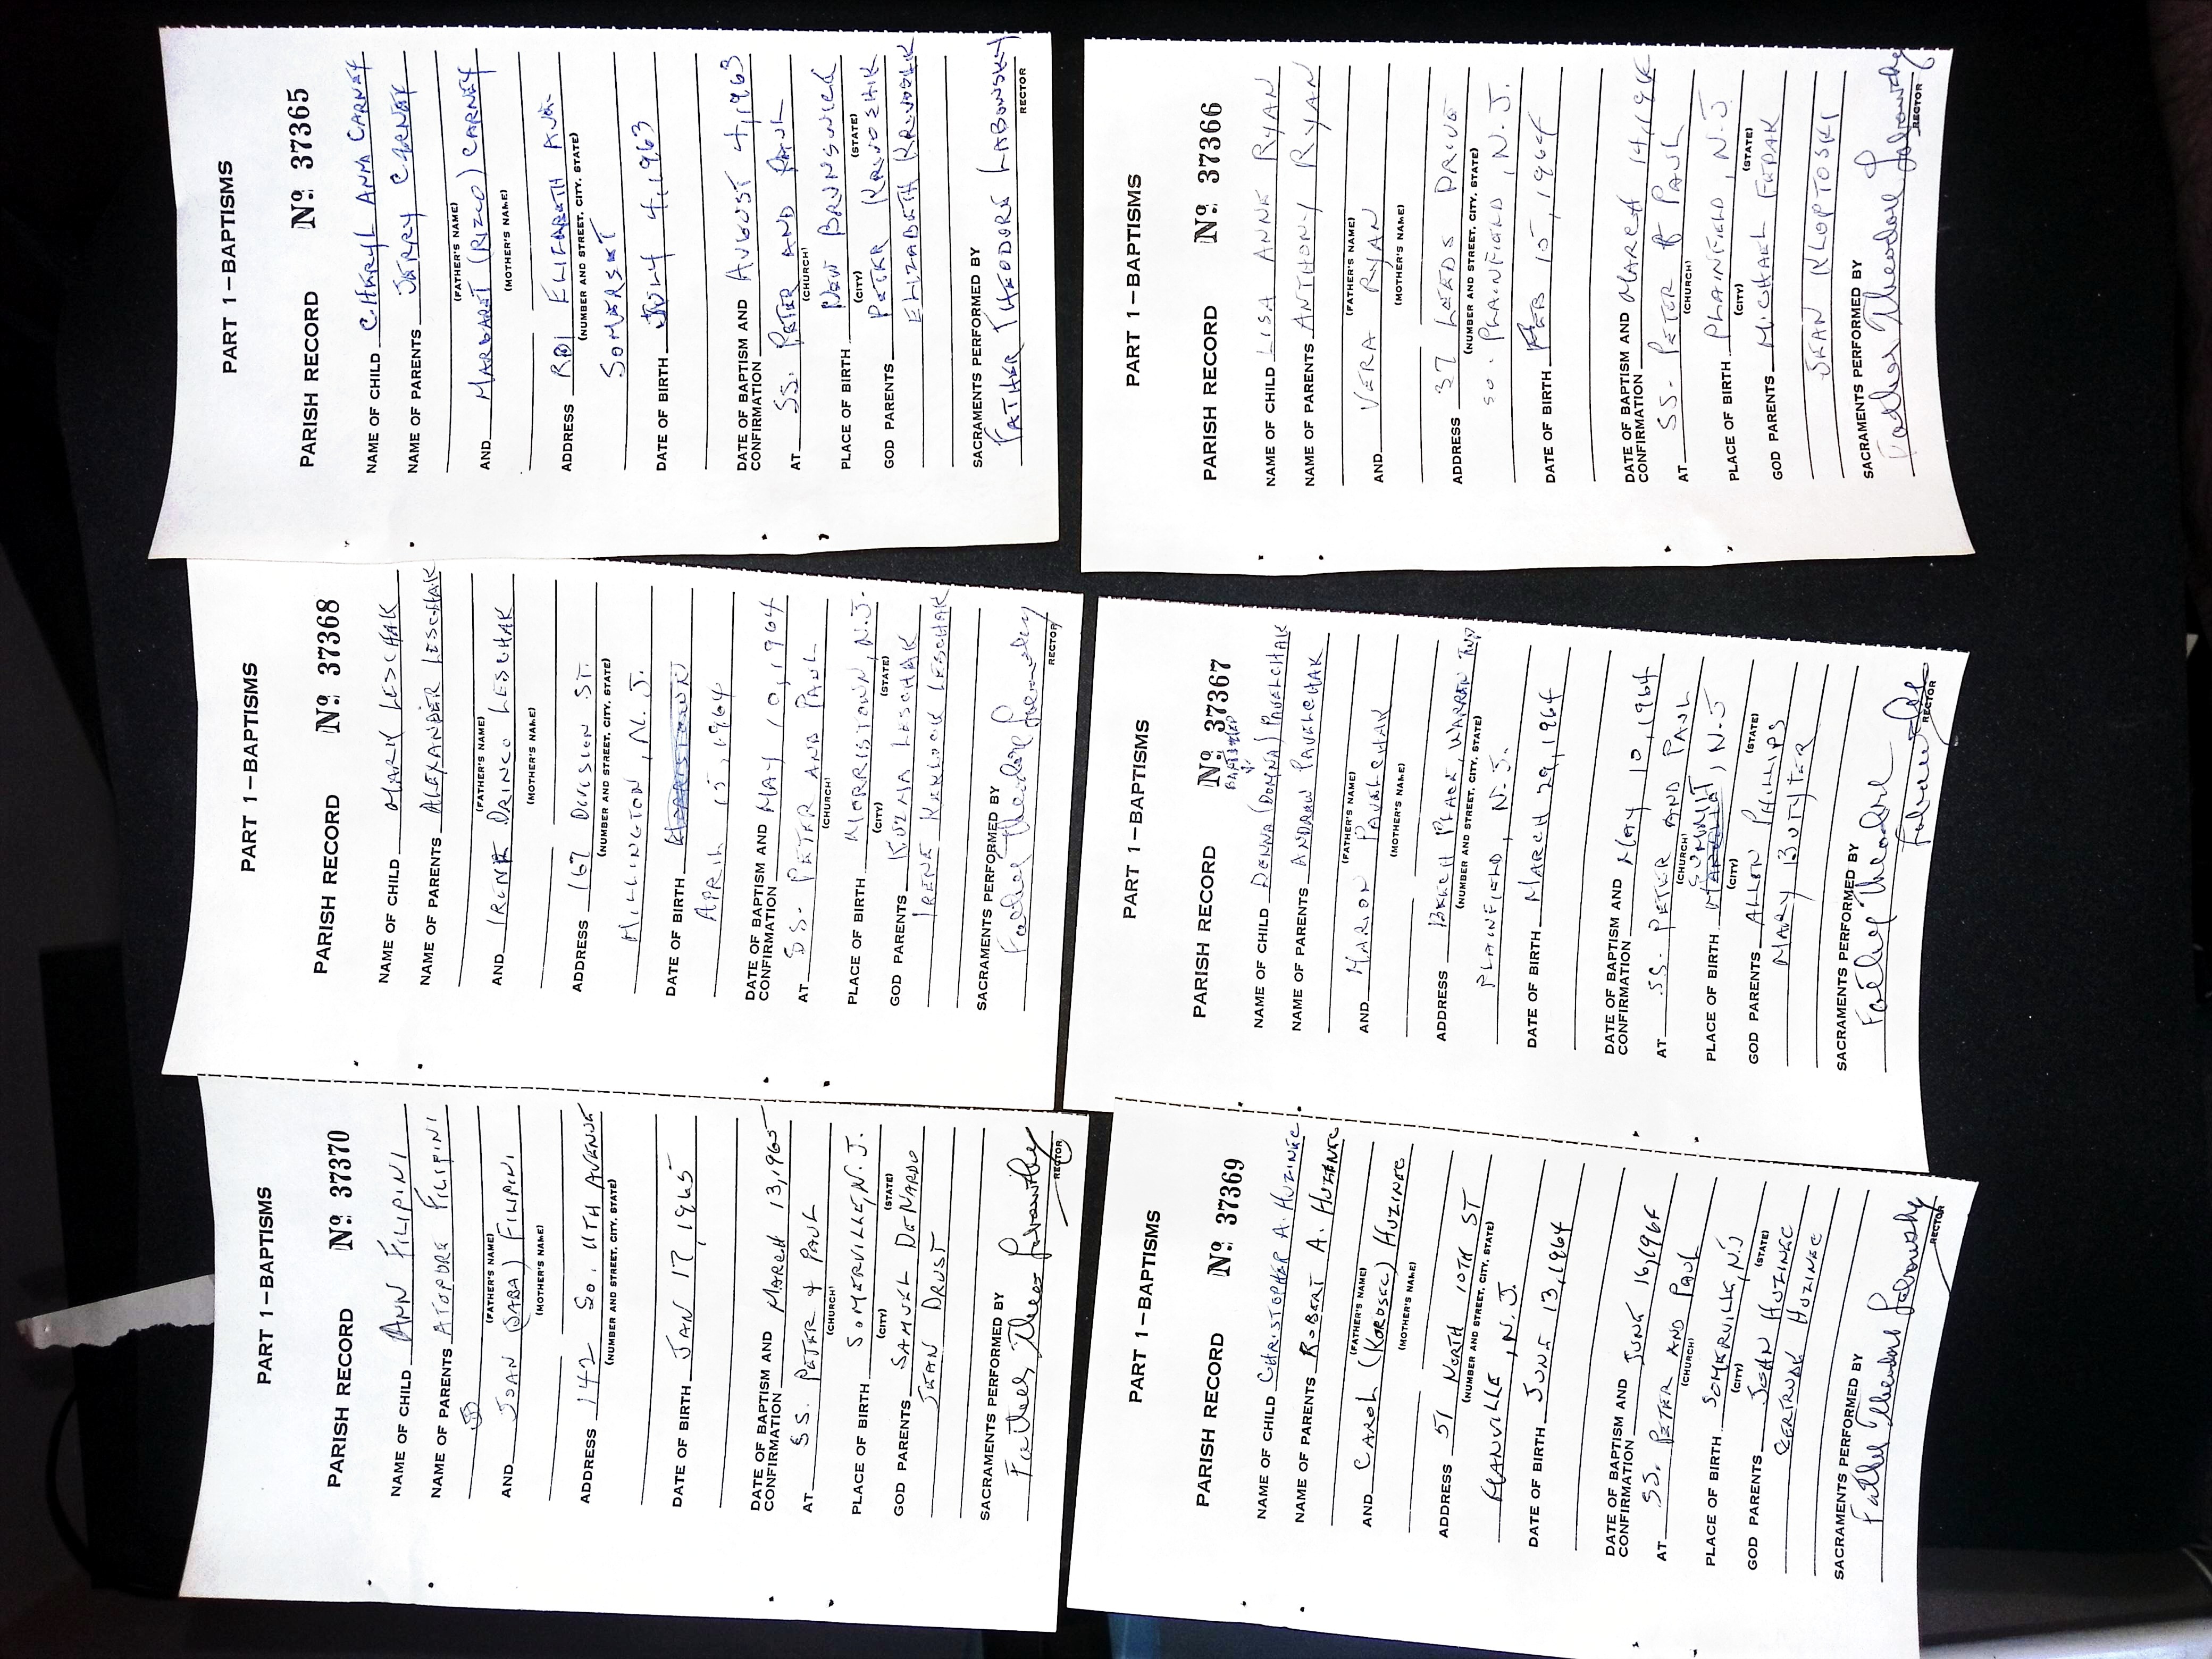 PART 1—BAPTISMS
PARISH RECORD Nº 37370
NAME OF CHILD ANN FILIPINI
NAME OF PARENTS ATOPORE FILIPINI
(FATHER'S NAME)
AND JOAN (SABA) FILIPINI
(MOTHER'S NAME)
ADDRESS 142 SO. 11TH AVENUE
(NUMBER AND STREET, CITY, STATE)
DATE OF BIRTH JAN 17, 1965
DATE OF BAPTISM AND
CONFIRMATION MARCH 13, 1965
AT SS. PETER & PAUL
(CHURCH)
PLACE OF BIRTH SOMERVILLE, N.J.
(CITY) (STATE)
GOD PARENTS SAMUEL DENARDO
JEAN DRUST
SACRAMENTS PERFORMED BY
Father Theo Labowsky
RECTOR
PART 1—BAPTISMS
PARISH RECORD Nº 37368
NAME OF CHILD MARK LESCHAK
NAME OF PARENTS ALEXANDER LESCHAK
(FATHER'S NAME)
AND IRENE DRINCO LESCHAK
(MOTHER'S NAME)
ADDRESS 167 DIVISION ST.
(NUMBER AND STREET, CITY, STATE)
MILLINGTON, N. J.
DATE OF BIRTH MORRISTOWN
APRIL 15, 1964
DATE OF BAPTISM AND
CONFIRMATION MAY 10, 1964
AT SS. PETER AND PAUL
(CHURCH)
PLACE OF BIRTH MORRISTOWN, N.J.
(CITY) (STATE)
GOD PARENTS KUZMA LESCHAK
IRENE LESCHAK
SACRAMENTS PERFORMED BY
Father Theodore Labowsky
RECTOR
PART 1—BAPTISMS
PARISH RECORD Nº 37365
NAME OF CHILD CHERYL ANNA CARNEY
NAME OF PARENTS JERRY CARNEY
(FATHER'S NAME)
AND MARGARET (RIZCO) CARNEY
(MOTHER'S NAME)
ADDRESS RD1 ELIZABETH AVE.
(NUMBER AND STREET, CITY, STATE)
SOMERSET
DATE OF BIRTH JULY 4, 1963
DATE OF BAPTISM AND
CONFIRMATION AUGUST 4, 1963
AT SS. PETER AND PAUL
(CHURCH)
PLACE OF BIRTH NEW BRUNSWICK
(CITY) (STATE)
GOD PARENTS PETER KRIVOSHIK
ELIZABETH KRIVOSHIK
SACRAMENTS PERFORMED BY
FATHER THEODORE LABOWSKY
RECTOR
PART 1—BAPTISMS
PARISH RECORD Nº 37369
NAME OF CHILD CHRISTOPHER A. HUZINEC
NAME OF PARENTS ROBERT A. HUZINEC
(FATHER'S NAME)
AND CAROL (KOROSEC) HUZINEC
(MOTHER'S NAME)
ADDRESS 51 NORTH 10TH ST
(NUMBER AND STREET, CITY, STATE)
MANVILLE, N.J.
DATE OF BIRTH JUNE 13, 1964
DATE OF BAPTISM AND
CONFIRMATION JUNE 16, 1964
AT SS. PETER AND PAUL
(CHURCH)
PLACE OF BIRTH SOMERVILLE, N.J
(CITY) (STATE)
GOD PARENTS JOHN HUZINEC
GERTRUDE HUZINEC
SACRAMENTS PERFORMED BY
Father Theodore Labowsky
RECTOR
PART 1—BAPTISMS
PARISH RECORD Nº 37367
BAPTIZED
NAME OF CHILD DENNA (DOMNA) PAVELCHAK
NAME OF PARENTS ANDREW PAVELCHAK
(FATHER'S NAME)
AND MARION PAVELCHAK
(MOTHER'S NAME)
ADDRESS BEECH PLACE, WARREN TWP
(NUMBER AND STREET, CITY, STATE)
PLAINFIELD, N.J.
DATE OF BIRTH MARCH 29, 1964
DATE OF BAPTISM AND
CONFIRMATION MAY 10, 1964
AT SS. PETER AND PAUL
(CHURCH)
SUMMIT
PLACE OF BIRTH , N.J
(CITY) (STATE)
GOD PARENTS ALLEN PHILLIPS
MARY BUTYTER
SACRAMENTS PERFORMED BY
Father Theodore
Labowsky
RECTOR
PART 1—BAPTISMS
PARISH RECORD Nº 37366
NAME OF CHILD LISA ANNE RYAN
NAME OF PARENTS ANTHONY RYAN
(FATHER'S NAME)
AND VERA RYAN
(MOTHER'S NAME)
ADDRESS 37 LEEDS DRIVE
(NUMBER AND STREET, CITY, STATE)
SO. PLAINFIELD, N.J.
DATE OF BIRTH FEB 15, 1964
DATE OF BAPTISM AND
CONFIRMATION MARCH 14, 196
AT SS. PETER & PAUL
(CHURCH)
PLACE OF BIRTH PLAINFIELD, N.J.
(CITY) (STATE)
GOD PARENTS MICHAEL FEDAK
JEAN KLOPTOSKI
SACRAMENTS PERFORMED BY
Father Theodore Labowsky
RECTOR